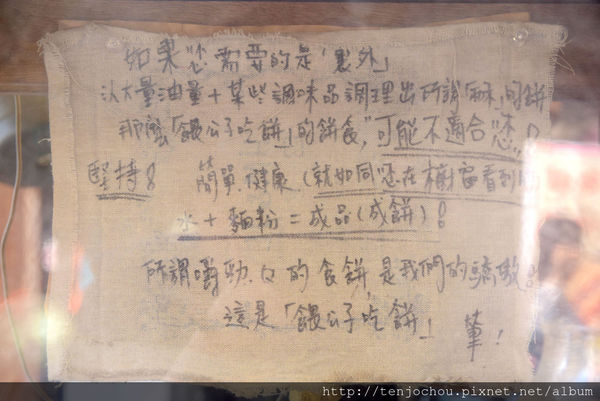 如果"您"需要的是「裏外」
以大量油量+某些調味品調理出所謂「酥」的餅
那麼「餵公子吃餅」的餅食,"可能不適合"您"!
堅持! 簡單健康(就如同"您在櫥窗看到的
水+麵粉=成品(成餅)!
所謂嚼勁.Q的食餅,是我們的驕傲!
這是「餵公子吃餅」 董!
http://tenjochou.pixnet.net/album